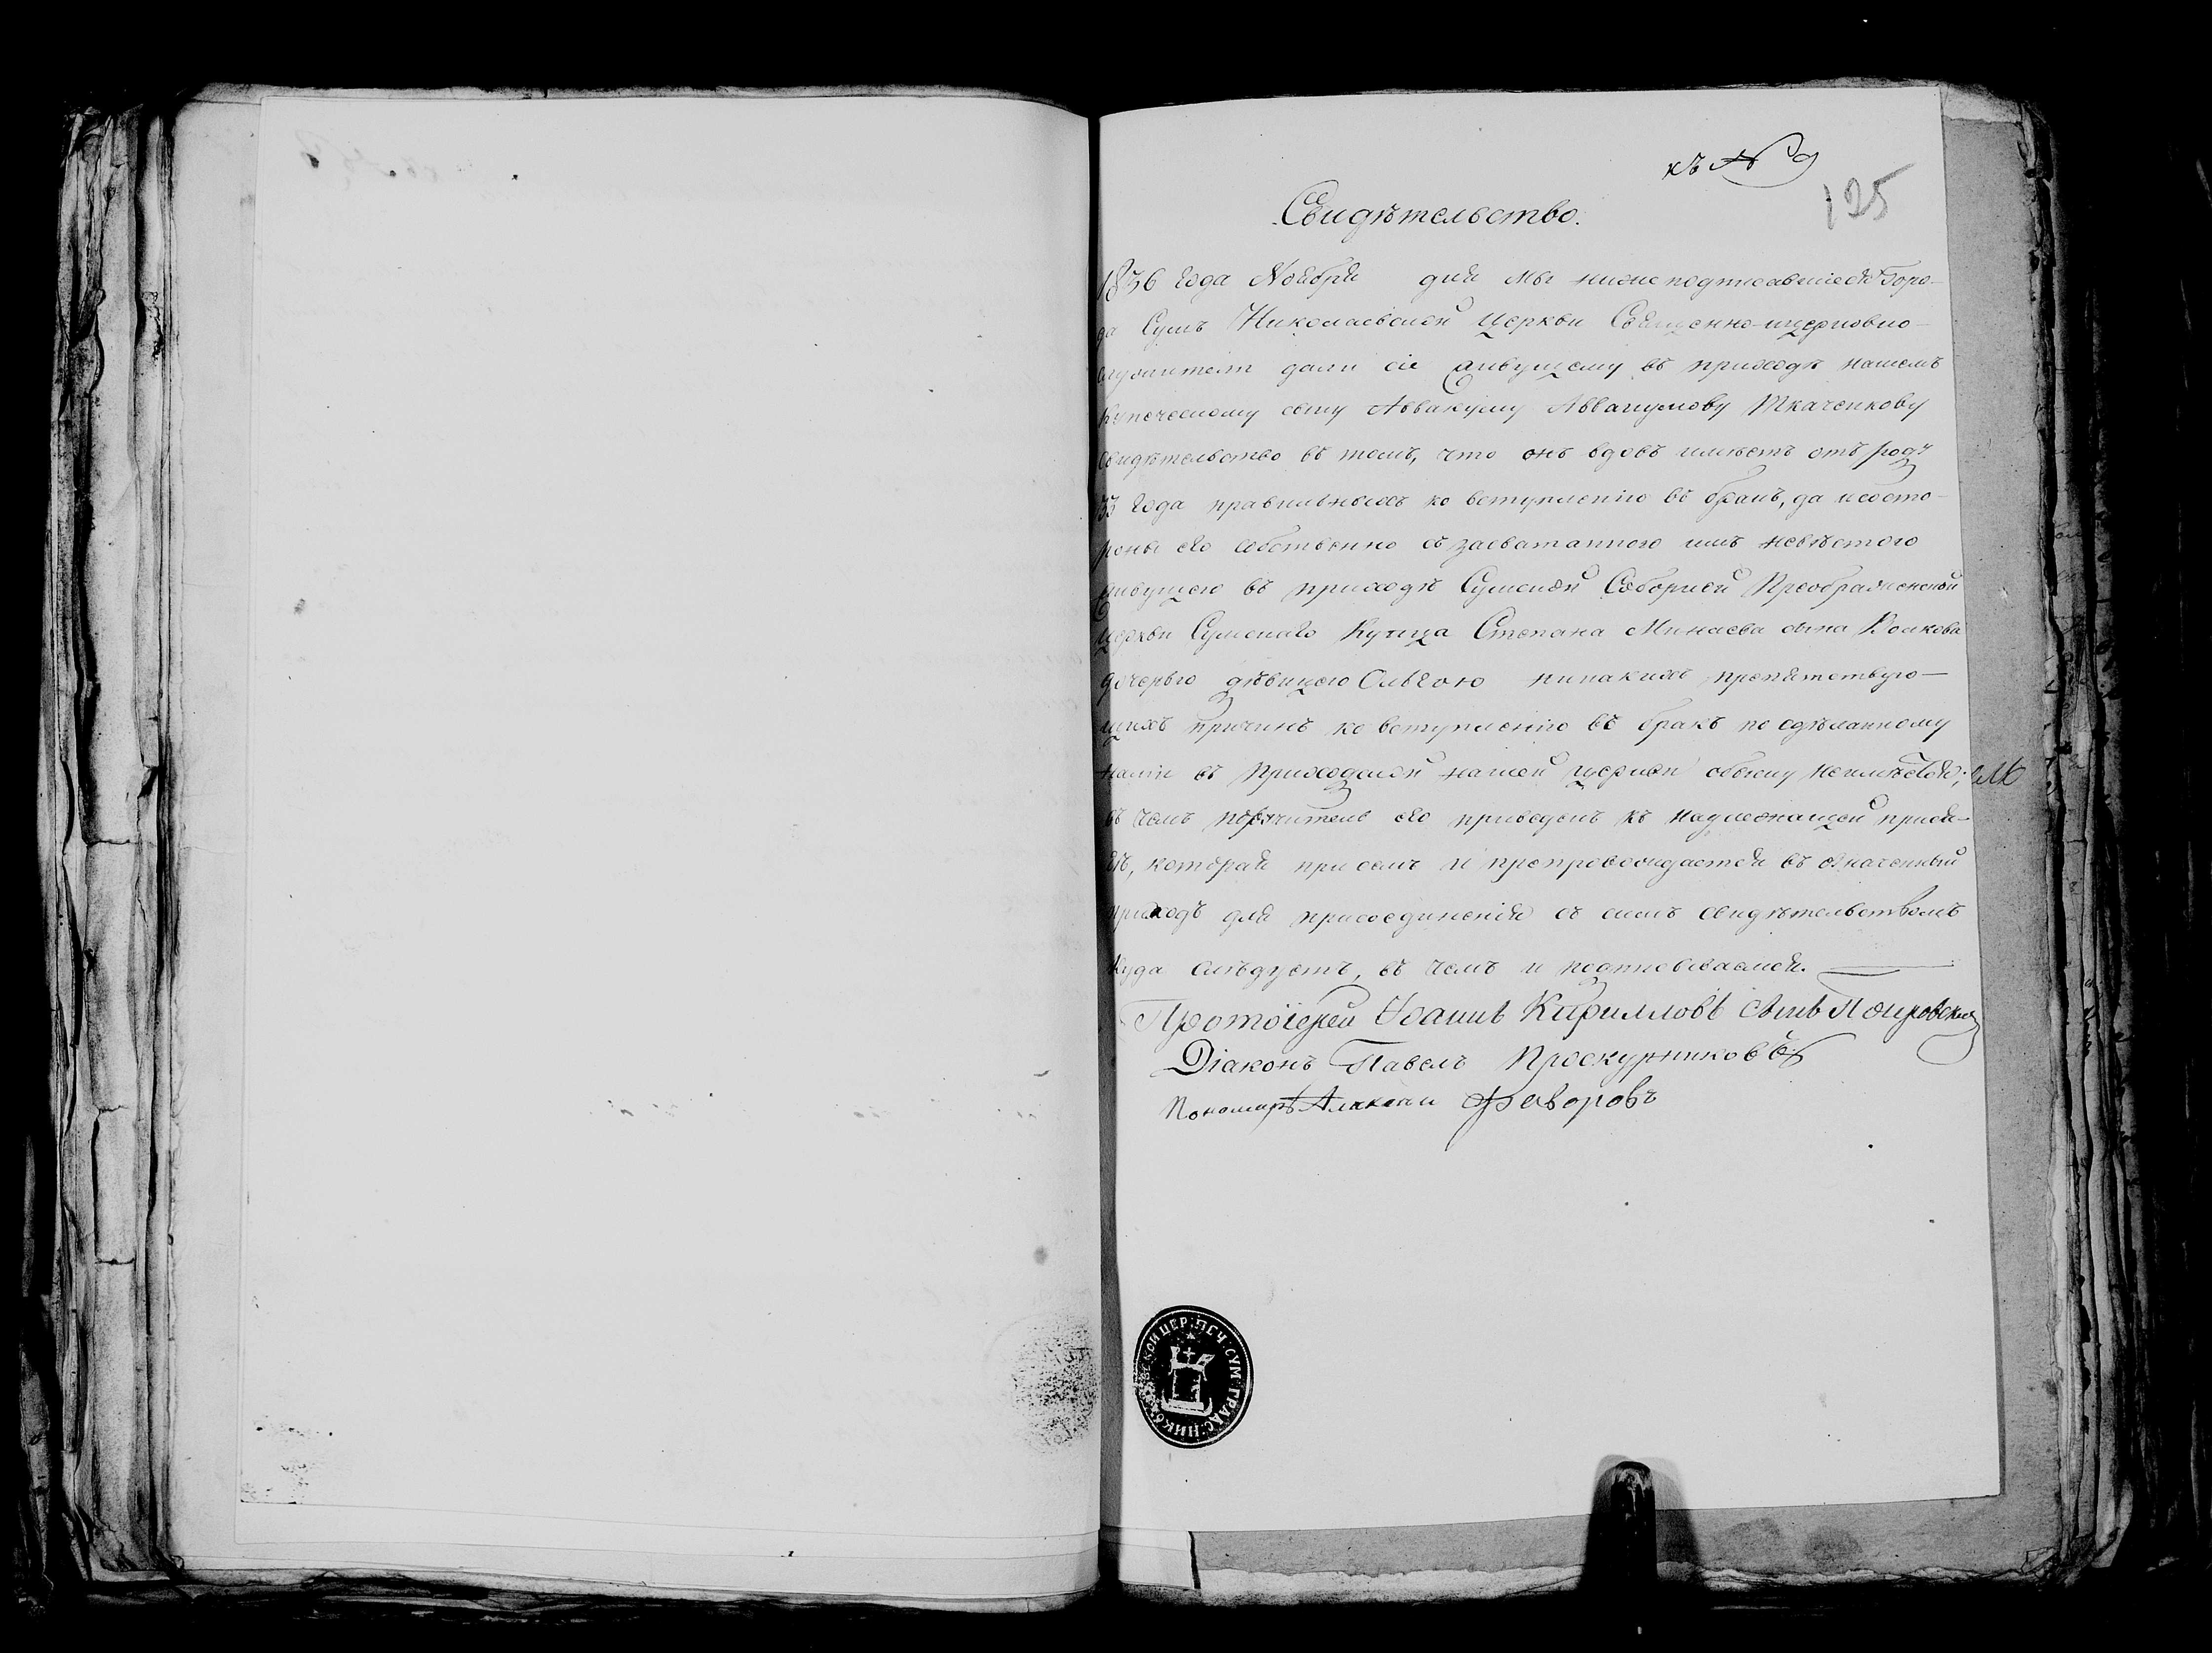 къ № 9
125
Свидѣтельство.
1836 года Ноября дня мы нижеподписавшіеся Горо-
да Сумъ Николаевской Церкви Священно-ицерковно-
служители дали сіе живущему въ приходѣ нашемъ
Купеческому сыну Аввакуму Аввакумову Ткаченкову
свидѣтельство въ томъ, что онъ вдовъ имѣетъ отъ роду
33 года правильныхъ ко вступленію въ бракъ, да исосто-
роны его собственно съ засватанною имъ невѣстою
живущею въ приходѣ Сумской Соборной Преображенской
Церкви Сумскаго Купца Степана Минаева сына
дочерью дѣвицею Ольгою никакихъ препятствую-
щихъ причинъ ко вступленію въ бракъ по сдѣланному
нами въ приходской нашей церкви обыску неимѣется;
въ чемъ поручитель его приведенъ къ надлежащей прися-
гѣ, которая при семъ и препровождается въ означенный
приходъ для присоединенія съ симъ свидѣтельствомъ
Куда слѣдуетъ, въ чемъ и подписываемся.
Протоіерей Іоаннъ Кирилловъ сынъ
Діаконъ Павелъ Проскурниковъ
Пономарь Алексѣй Фаворовъ
ПЕЧ: СУМ: ГРАДС: НИКОЛАЕВСКОЙ ЦЕР: